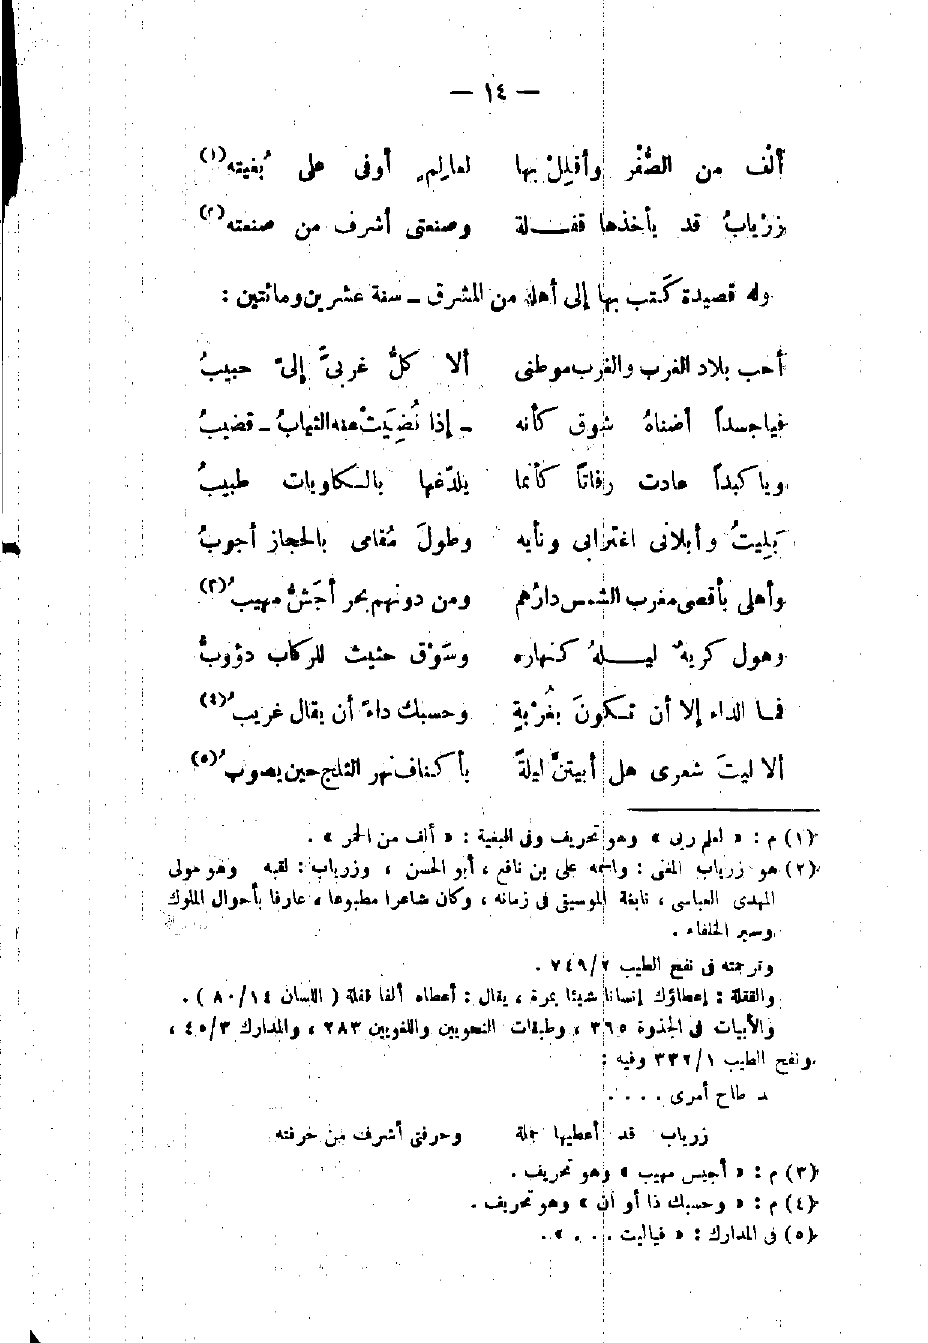 — ١٤ —
ألْف من الصُّفْر وأقلِلْ بها لعالِمٍ أوفى على بُغيته (١)
زرْيابُ قد يأخذها قفـلة وصنعتى أشرف من صنعته (٢)
وله قصيدة كتب بها إلى أهله من المشرق ـ سنة عشرين ومائتين :
أحب بلاد الغرب والغرب موطنى ألا كلُّ غربىٍّ إلىّ حبيبُ
فيا جسداً أضناهُ شوق كأنه ـ إذا نُضِيَتْ عنه الثيابُ ـ قضيبُ
ويا كبداً عادت رفاتاً كأنما يلدّغها بالكاويات طبيبُ
بَلِيتُ وأبلانى اغترابى ونأيه وطولَ مُقامى بالحجاز أجوبُ
وأهلى بأقصى مغرب الشمس دارُهم ومن دونهم بحر أجَشُّ مهيبُ (٣)
وهول كريهٌ ليـلهُ كنهاره وسَوْق حثيث للركاب دؤوبُ
فما الداء إلا أن تكونَ بغُرْبةٍ وحسبك داءً أن يقال غريبُ (٤)
ألا ليتَ شعرى هل أبيتنَّ ليلةً بأكناف نهر الثلج حين يصوبُ (٥)
(١) م : « لعلم ربى » وهو تحريف وفى البغية : « ألف من الحمر » .
(٢) هو زرياب المغنى : واسمه على بن نافع ، أبو الحسن ، وزرياب : لقبه وهو مولى
المهدى العباسى ، نابغة الموسيقى فى زمانه ، وكان شاعرا مطبوعا ، عارفا بأحوال الملوك
وسير الخلفاء .
وترجمته فى نفح الطيب ٢/٧٤٩ .
والقفلة : إعطاؤك إنسانا شيئا بمرة ، يقال : أعطاه ألفا قفلة ( اللسان ١٤/٨٠ ) .
والأبيات فى الجذوة ٢٦٥ ، وطبقات النحويين واللغويين ٢٨٣ ، والمدارك ٣/٤٥ ،
ونفح الطيب ١/٣٣٢ وفيه :
طاح أمرى . . . .
زرياب قد أعطيها جملة وحرفتى أشرف من حرفته
(٣) م : « أجيس مهيب » وهو تحريف .
(٤) م : « وحسبك ذا أو أن » وهو تحريف .
(٥) فى المدارك : « فياليت . . . » .